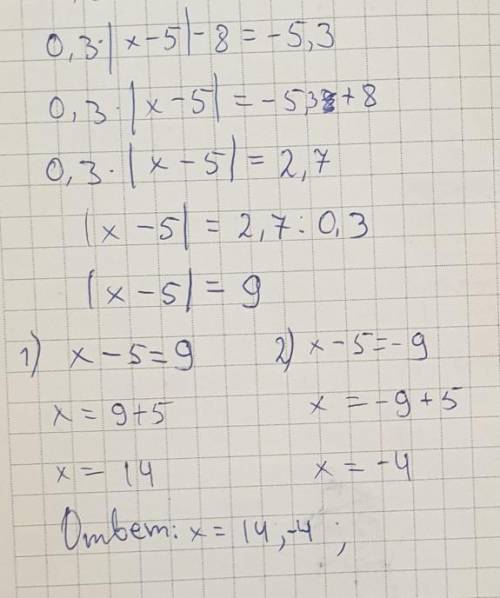 0,3·|x-5|-8=-5,3
0,3·|x-5|=-5,3+8
0,3·|x-5|=2,7
|x-5|=2,7:0,3
|x-5|=9
1) x-5=9 2) x-5=-9
x=9+5 x=-9+5
x=14 x=-4
Ответ: x=14,-4;